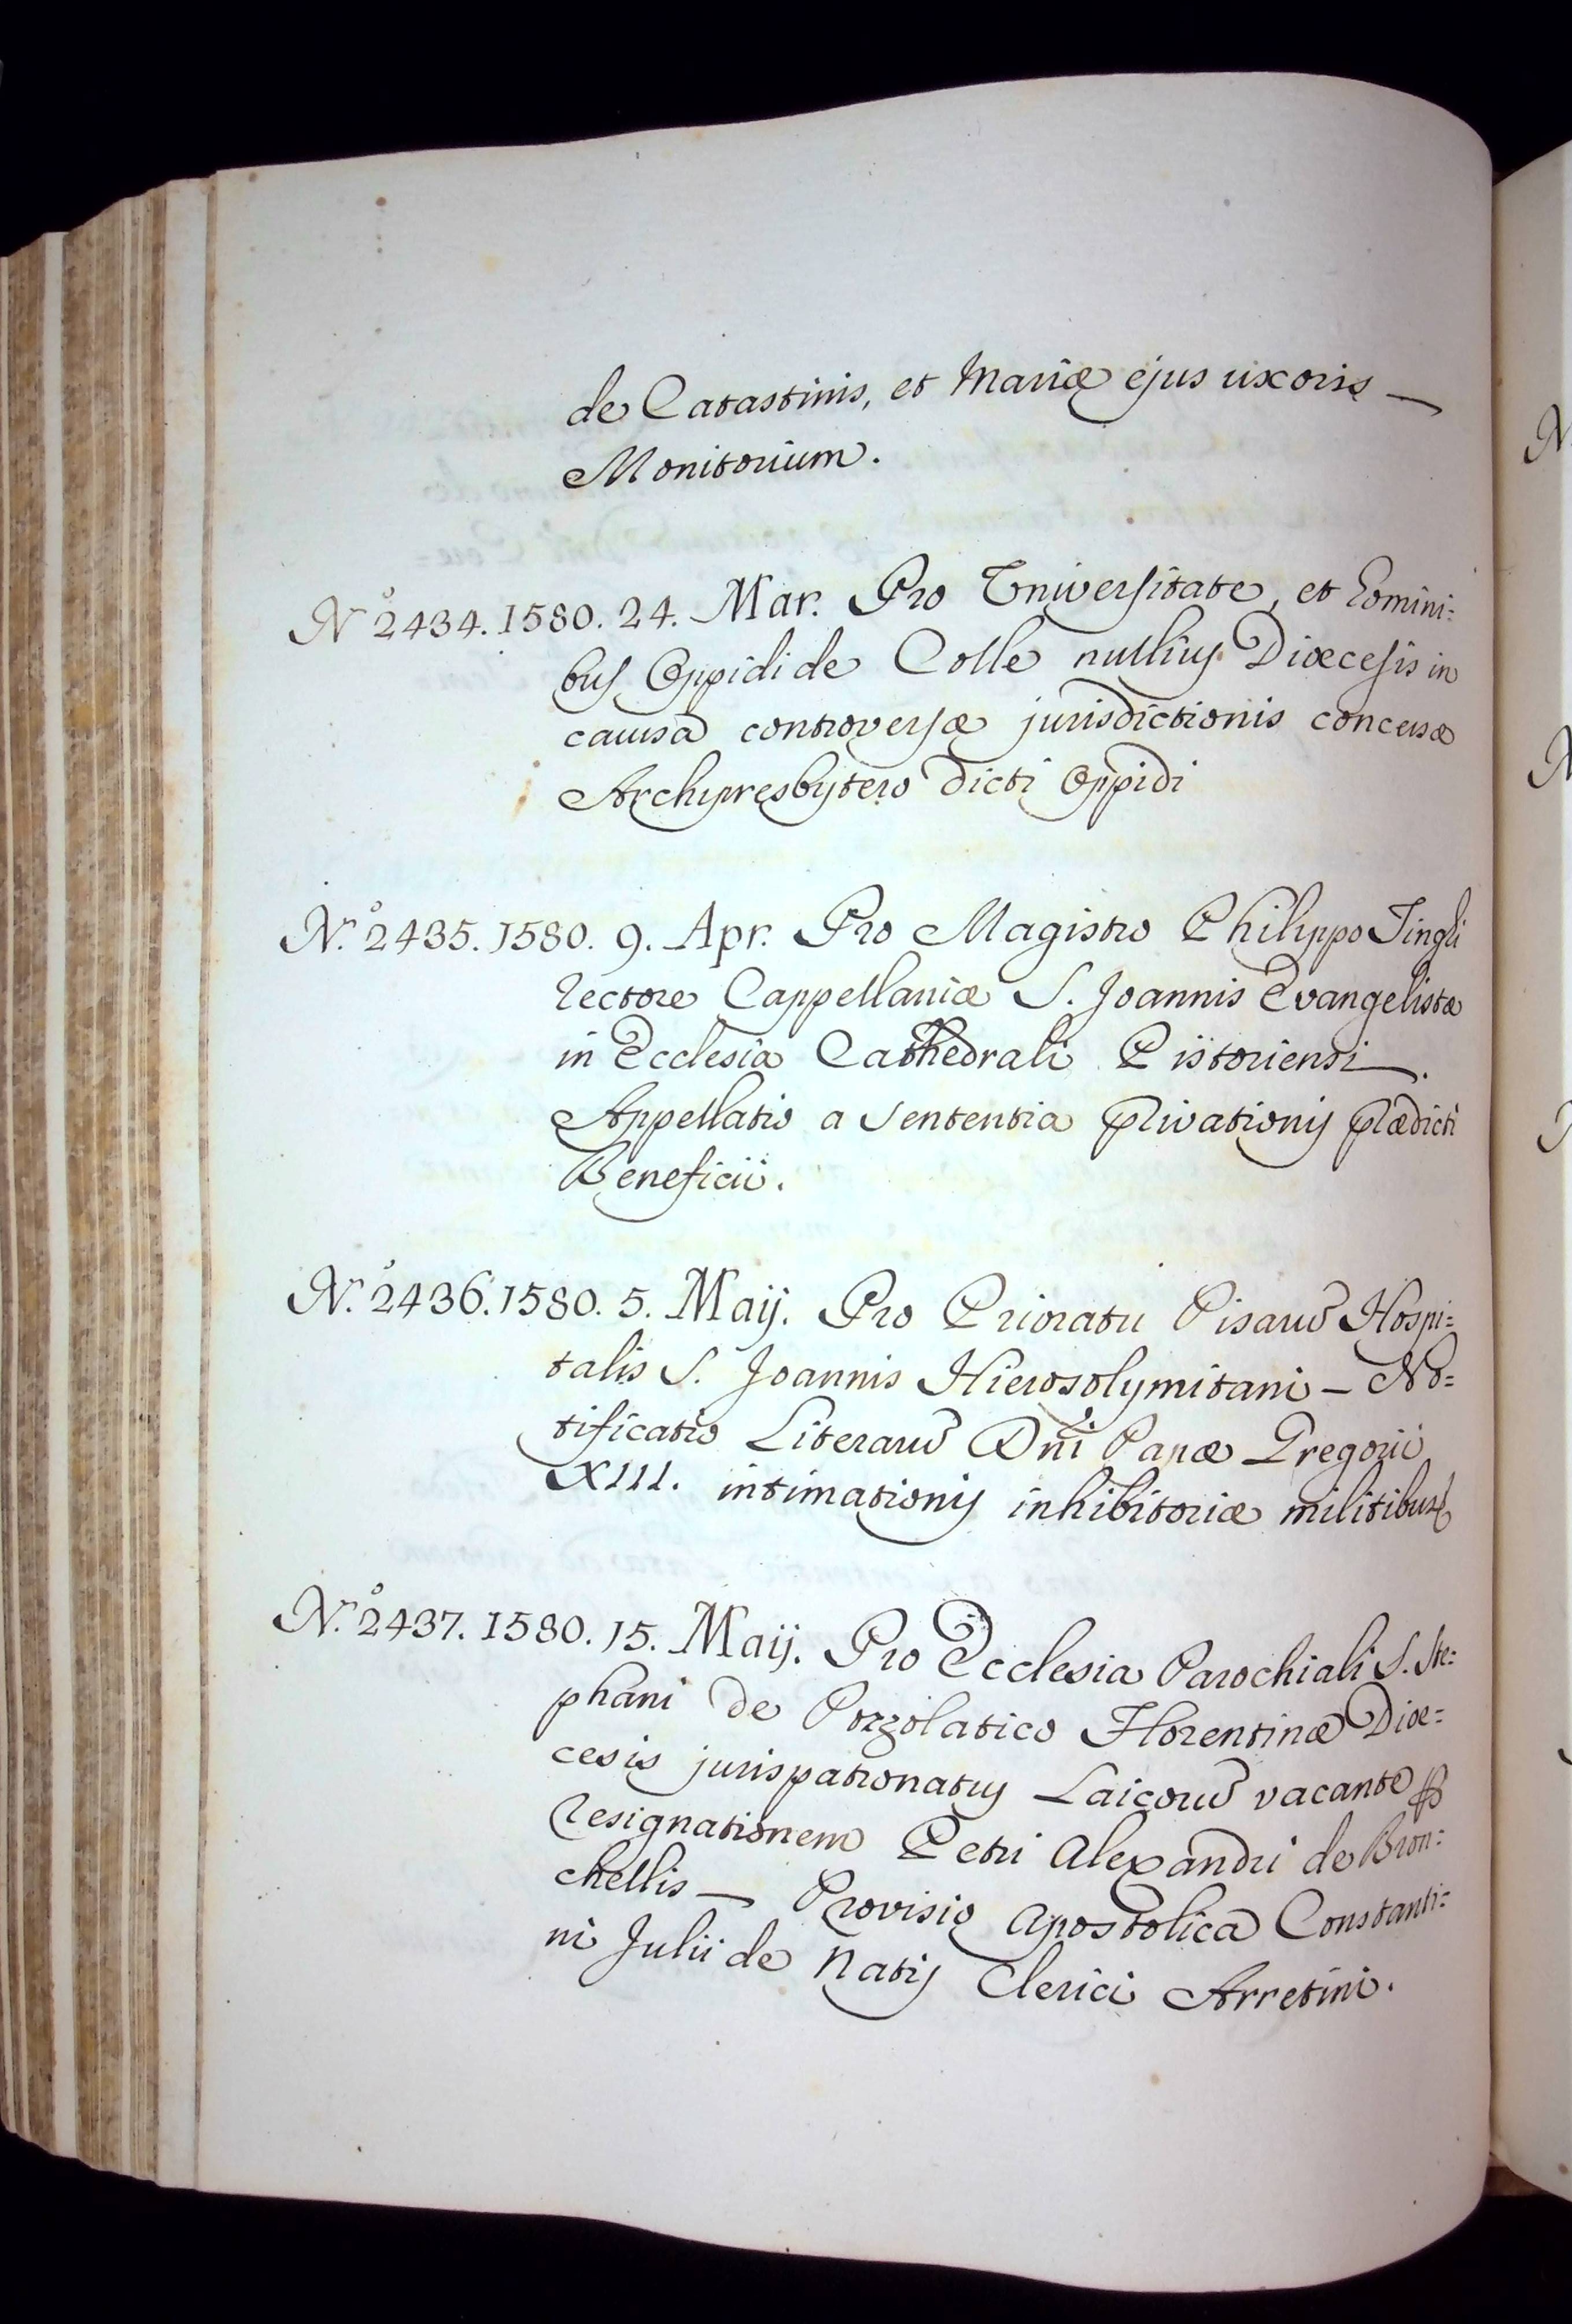 de Catastinis, et Mariæ ejus uxoris —
Monitorium.
N.º 2434. 1580. 24. Mar. Pro Universitate, et homini=
bus Oppidi de Colle nullius Diœcesis in
causa controversæ jurisdictionis concessæ
Archipresbytero dicti Oppidi
N.º 2435. 1580. 9. Apr. Pro Magistro Philippo Tingli
rectore Cappellaniæ S. Joannis Evangelistæ
in Ecclesia Cathedrali Pistoriensi —.
Appellatio a sententia privationis prædicti
Beneficii.
N.º 2436. 1580. 5. Maij. Pro Prioratu Pisaru Hospi=
talis S. Joannis Hierosolymitani – No=
tificatio Literaru Dni Papæ Gregorii
XIII. intimationis inhibitoriæ militibus
N.º 2437. 1580. 15. Maij. Pro Ecclesia Parochiali S. Ste=
phani de Pozzolatico Florentinæ Diœ=
cesis jurispatronatus Laicoru vacante p
resignationem Petri Alexandri de Bron=
chellis — Provisio Apostolica Constanti=
ni Julii de Natis Clerici Arretini.
N.
N